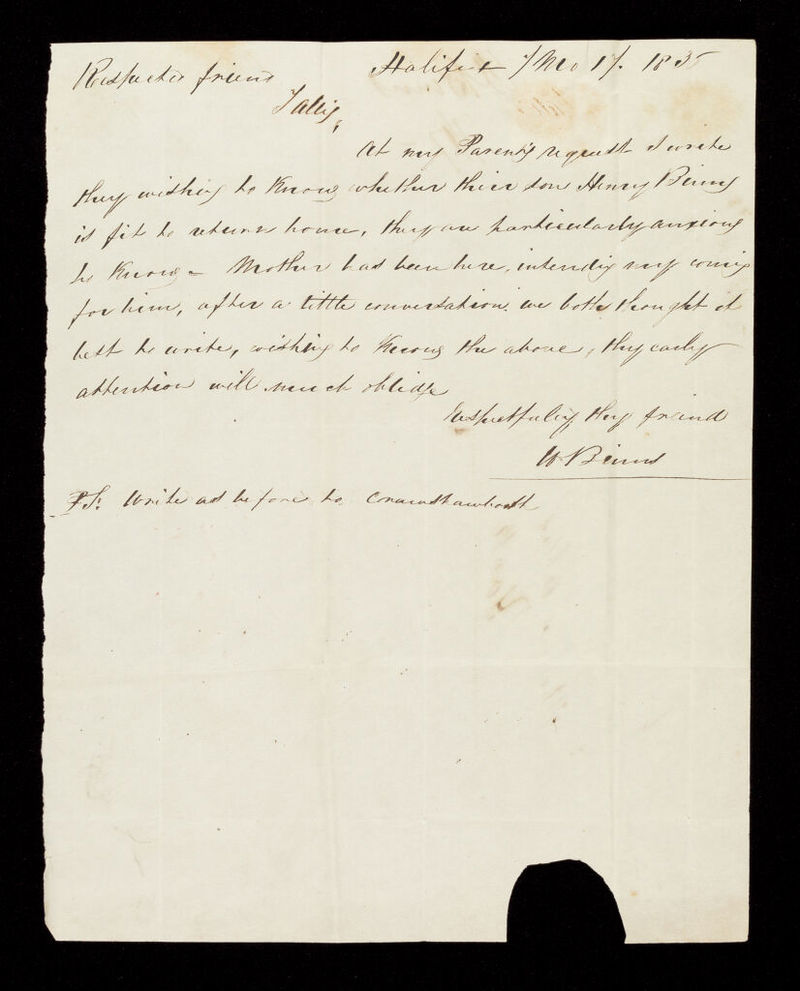 Respected friend Halifax 7 Mo 17. 1835
At my Parents request I write
they wishing to know whether their son Henry Binns
is fit to return home, they are particularly anxious
to know - Mother has been here, intending my coming
for him, after a little conversation we both thought it
best to write, wishing to know the above, thy early
attention will much oblidge
respectfully thy friend
W Binns
PS. Write as before to